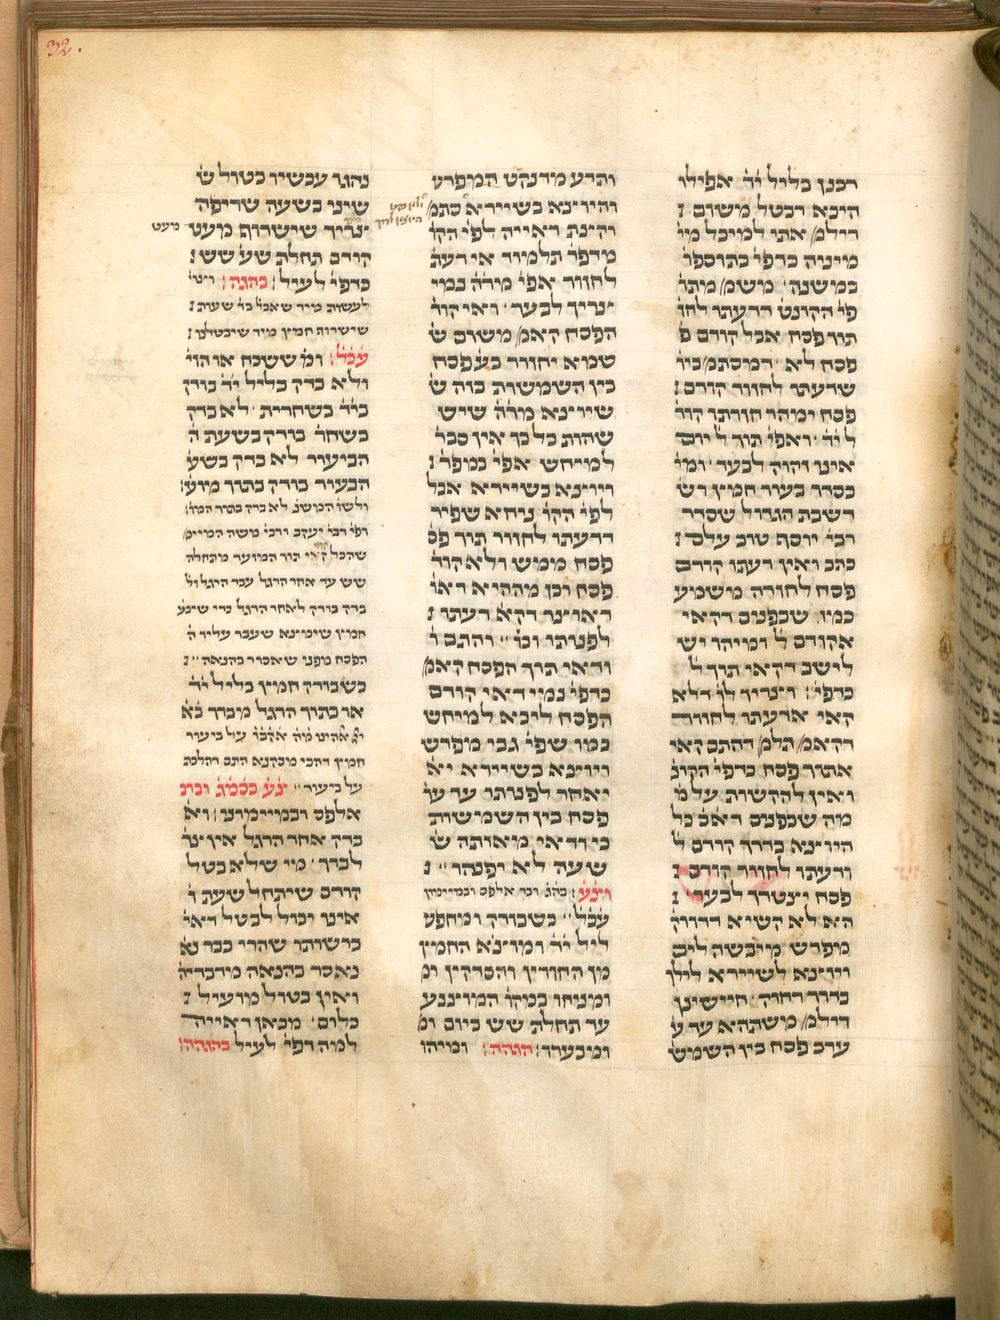 32.
רבנן בליל יד אפילו
היכא דבטל משום ז
דילמ/ אתי למיכל מי
מיניה כדפי בתוספו
במשנה משמ/ מתו
פי הקונט דדעתו לחז
תוך פסח אבל קודם פ
פסח לא דמסתמ/ כיו
שדעתו לחזור קודם
פסח ימהר חזרתו קוד
ל יד ואפי תוך ל יום
אינו זקוק לבער ומי
בסדר בעור חמץ דש
דשבת הגדול שסדר
רבי יוסף טוב עלם ז
כתב ואין דעתו קודם
פסח לחזרה משמיע
כמו שבפנים דקאי
אקודם ל ומיהו יש
לישב דקאי תוך ל
כדפי וצריך לו דלא
קאי אדעתו לחזור
דקאמ/ תלמ/ דהתם קאי
אתוך פסח כדפי הקונ
ואין להקשות על מ
מה שבפנים דאב כל
היוצא בדרך קודם ל
ודעתו לחזור קודם ז
פסח יצטרך לבער ז
הא לא קשיא דדווק
מפרש מיבשה לים
ויוצא לשיירא לילך
בדרך רחוק חיישינן
דילמ/ משתהא עד ע
ערב פסח בין השמש
ותדע מדנקט המפרש
והיוצא בשיירא סתמ/
יהיבת ראייה לפי הקו
מדפר תלמוד אי דעת
לחזור אפי מרה נמי
צריך לבער ואי קוד
הפסח קאמ/ משום ש
שמא יחזור בע פסח
בין השמשות בזה ש
שיוצא מרה שיש
שהות כל כך אין סבר
למיחש אפי במפר ז
ויוצא בשיירא אבל
לפי הקו ניחא שפיר
דדעתו לחזור תוך פס
פסח ממש ולא קוד
פסח וכן מההיא דאו
דאוצר דקא דעתו ז
לפנותו וכו והתם ו
ודאי תוך הפסח קאמ/
כדפי נמי דאי קודם
הפסח ליכא למיחש
כמו שפי גבי מפרש
ויוצא בשיירא יא
יאחר לפנותו עד ער
פסח בין השמשות
כיודאי מאותה ש
שעה לא יפקהר ז
ויצע בהג וכו אלפס ובמיימון
עכל כשבודק ומחפש
ליל יד ומוצא החמץ
מן החורין והסדקין ומ
ומניחו במקו המוצנע
עד תחלת שש ביום ומ
ומבערו הגהה ומיהו
נהגו עכשיו כטול ש
שיני בשעה שריפה
צריך שישרוף מעט
מעט
קודם תחלת שע שש
כדפי לעיל בהגה וצי
לעשות מיד שאכל בד שעות
ששירוף חמץ מיד שיבטלנו
עכל ומ ששכח או הזי
ולא בדק בליל יד בודק
ביד בשחרית לא בדק
בשחר בודק בשעת ה
הביעור לא בדק בשע
הבעור בודק בתוך מוע
ולשו המשנ לא בדק בתוך המו
ופי רבי יעקב ורבי משה המיימ
שהכל קאי תוך המועד מתחלה
שש עד אחר הרגל עבר הרגל ול
בדק בודק לאחר הרגל כדי שיבע
חמץ שימצא שעבר עליו ה
הפסח מפני שאסור בהנאה
כשבודק חמץ בליל יד
או בתוך הרגל מברך בא
יי אלהינו מה אקבו על ביעור
חמץ דהכי מסקנא התם דהלכת
על ביעור יצע בסמג וברב
אלפס ובמיימוני וא
בדק אחר הרגל אין צר
לברך מי שלא בטל
קודם שיתחל שעת ז
אינו יכול לבטל דאי
ברשותו שהרי כבר נא
נאסר בהנאה מדבריה
ואין בטול מועיל ז
כלום מכאן ראייה
למה דפי לעיל בהגהה